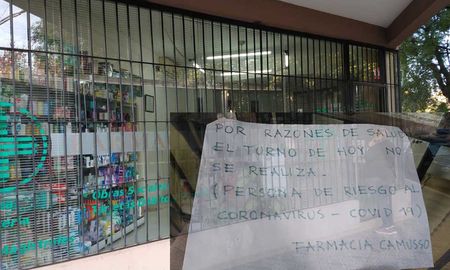 Obras S
POR RAZONES DE SALUD
EL TURNO DE HOY NO
SE REALIZA.
(PERSONA DE RIESGO AL
CORONAVIRUS - COVID 19)
FARMACIA CAMUSSO